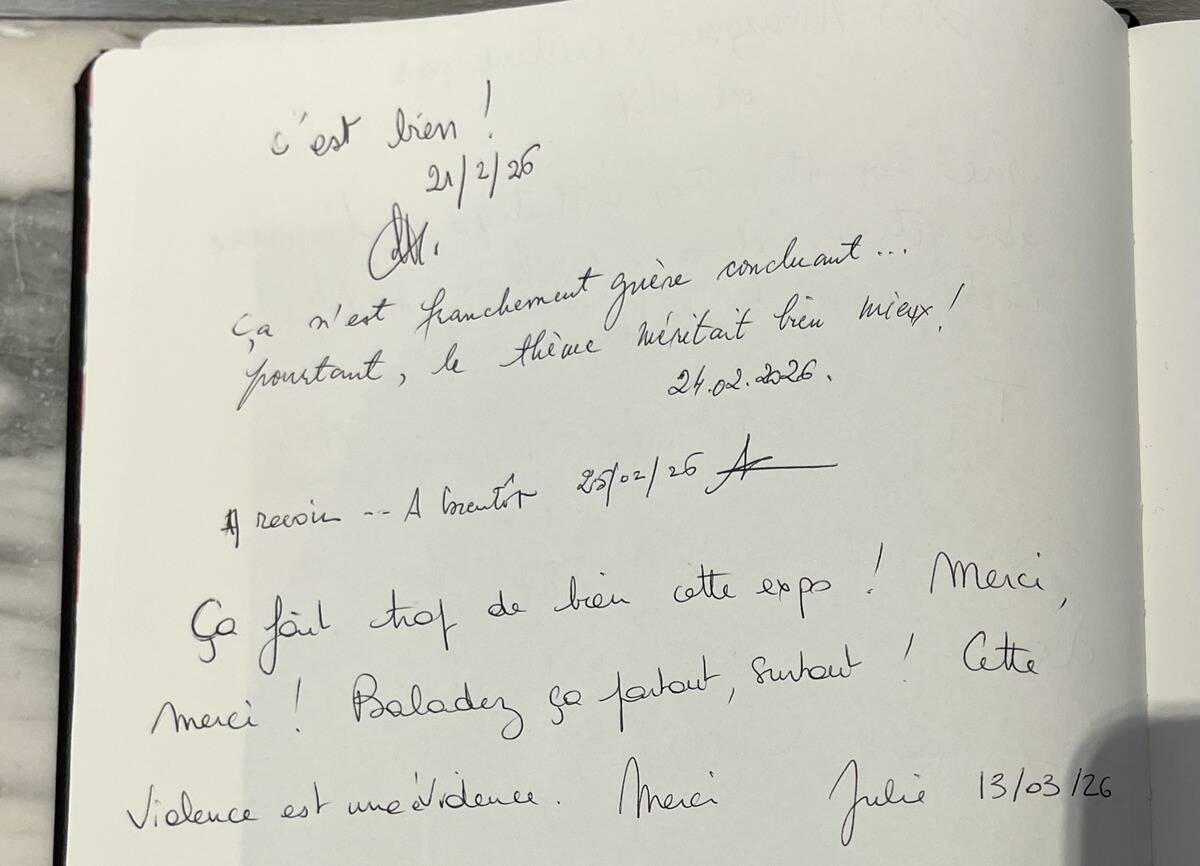 c'est bien !
21/2/26
ça n'est franchement guère concluant...
pourtant, le thème méritait bien mieux !
24.02.2026.
A revoir ... A bientôt 25/02/26
Ça fait trop de bien cette expo ! Merci,
Merci ! Baladez ça partout, surtout ! Cette
violence est une évidence. Merci Julie 13/03/26